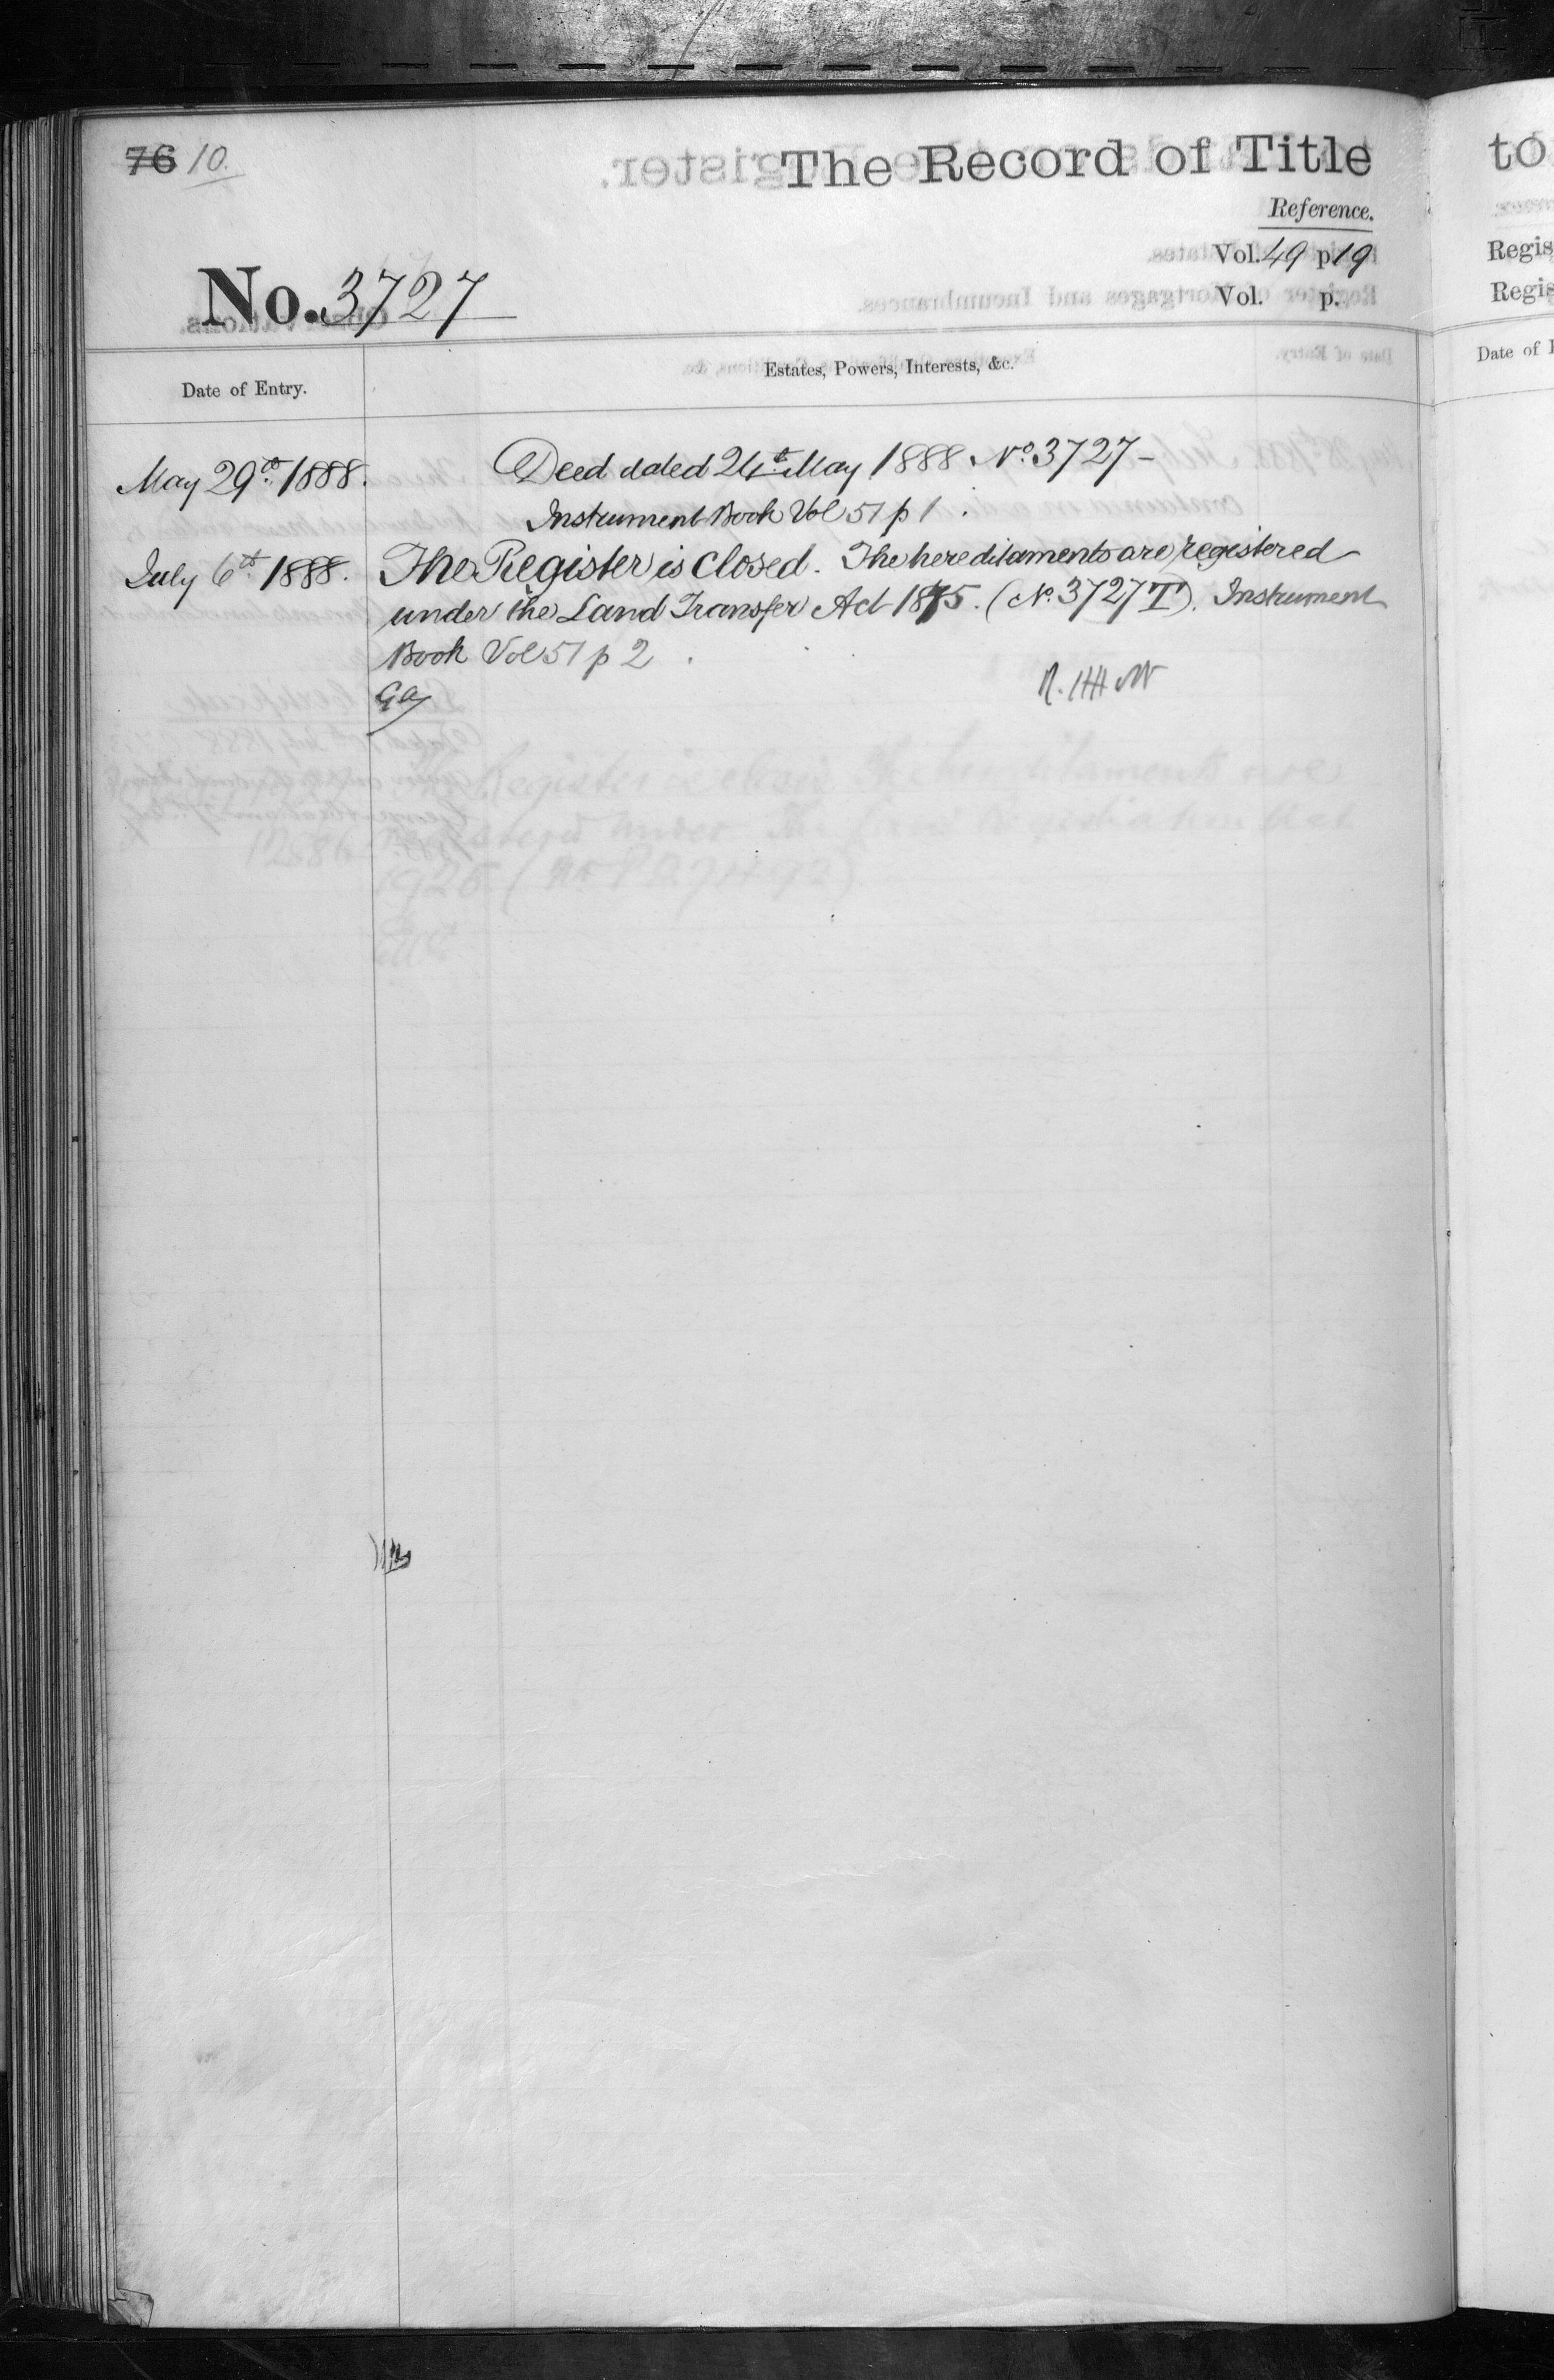 76 10.
The Record of Title
to
Reference.
Vol. 49 p. 19
Regis
No. 3727
Vol. p.
Regis
Date of Entry.
Estates, Powers, Interests, &c.
Date of
May 29th 1888.
Deed dated 26th May 1888 No. 3727 –
Instrument Book Vol 51 p 1.
July 6th 1888.
The Register is closed. The hereditaments are registered
under the Land Transfer Act 1875. (No. 3727 T). Instrument
Book Vol 51 p 2.
Register is closed The hereditaments are
registered under the Land Registration Act